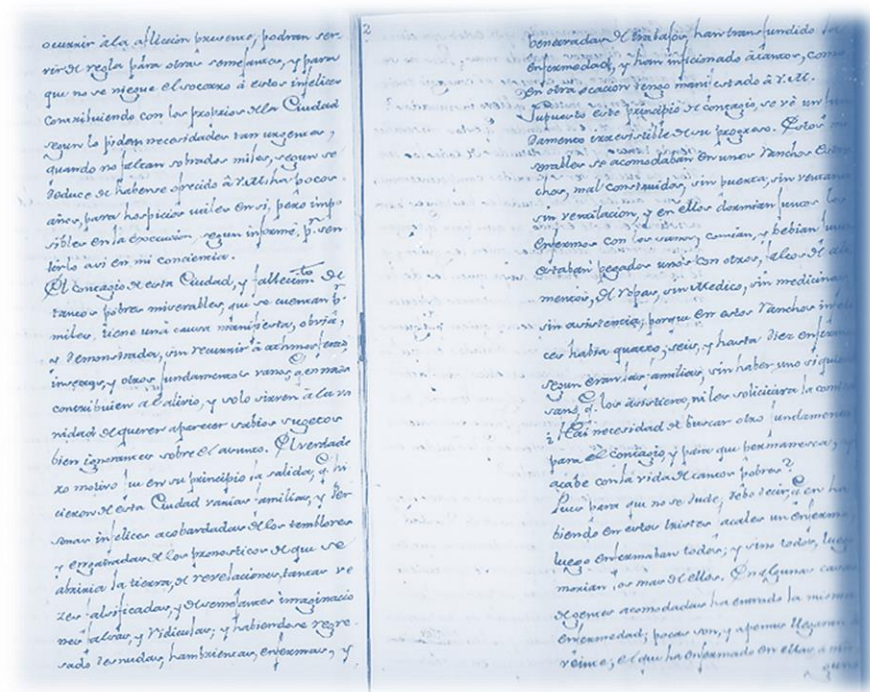 ocurrir à la aflicción presente, podran ser-
vir de regla para otras semejantes, y para
que no se niegue el socorro à estos infelices
contribuiendo con los proprios de la Ciudad
segun lo pidan necesidades tan urgentes,
quando no faltan sobrados miles, segun se
deduce de haberse ofrecido à V.M. ha pocos
años, para hospicios utiles en si, pero impo
sibles en la execucion, segun informé, pr. sen
tirlo asi en mi conciencia.
El contagio de esta Ciudad, y fallecimto. de
tantos pobres miserables, que se cuentan pr.
miles, tiene una causa manifiesta, obvia,
y demonstrada, sin recurrir à athmosferas
y otros fundamentos vanos, q. en nada
contribuien al alivio, y solo sirven a la va
nidad de querer aparecer sabios sugetos
bien ignorantes sobre el asunto. El verdade
ro motivo fue en su principio la salida, q. hi
cieron de esta Ciudad varias familias, y per
sonas infelices acobardadas de los temblores
y engañadas de los pronosticos de que se
abriria la tierra, de revelaciones, tantas ve
zes falsificadas, y de semejantes imaginacio
nes falsas, y ridiculas, y habiendose regre
sado desnudas, hambrientas, enfermas, y
2
de trabajos, han transfundido la
enfermedad, y han inficionado à tantos, como
en otra ocacion tengo manifestado à V.M.
Supuesto este principio de contagio, se vè un fun
damento irresistible de su progreso. Estos mi
serables se acomodaban en unos ranchos estre
chos, mal construidos, sin puerta, sin ventana
sin ventilacion, y en ellos dormian juntos los
enfermos con los sanos, comian, y bebian
estaban pegados unos con otros, faltos de ali
mentos, de ropas, sin Medico, sin medicinas
sin asistencia; porque en estos ranchos infeli
ces habia quatro, seis, y hasta diez enfermos
segun eran las familias, sin haber uno siquiera
sano q. los asistiera, ni les solicitara la comida
¿Hai necesidad de buscar otro fundamento
para el contagio y para que permanesca, y
acabe con la vida de tantos pobres?
Pues para que no se dude, debo decir, q. en ha
biendo en estos tristes un enfermo,
luego enfermaban todos; y sino todos, luego
morian los mas de ellos. En algunas casas
de gentes acomodadas ha entrado la misma
enfermedad; pocas son, y apenas llegaran à
veinte; el que ha enfermado en ellas, à